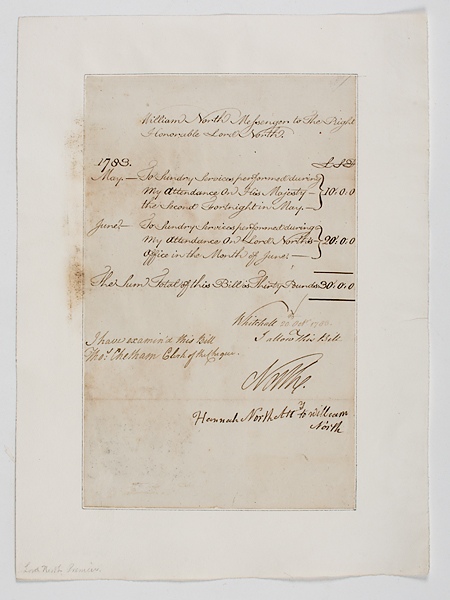 William North Messenger to The Right
Honorable Lord North.
1783. £ S D
May.— To Sundry Services performed during
My Attendance On His Majesty —
the Second Fortnight in May.— } 10:0:0
June.— To Sundry Services performed during
My Attendance On Lord North's
Office in the Month of June.— } 20:0:0
The Sum Total of this Bill is Thirty Pounds 30:0:0
Whitehall Octr 1783.
I allow this Bill.
I have examin'd this Bill
Thos. Cheetham Clerk of the Cheque.
North.
Hannah North Atty to William
North
Lord North Premier